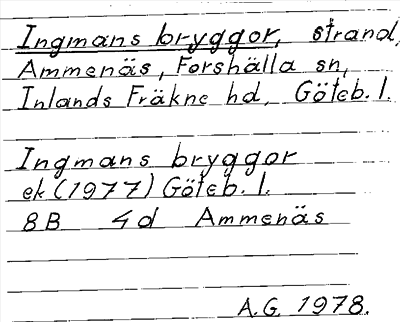 Ingmans bryggor, strand,
Ammenäs, Forshälla sn,
Inlands Fräkne hd, Göteb. l.
Ingmans bryggor
ek (1977) Göteb. l.
8B 4d Ammenäs
A.G. 1978.